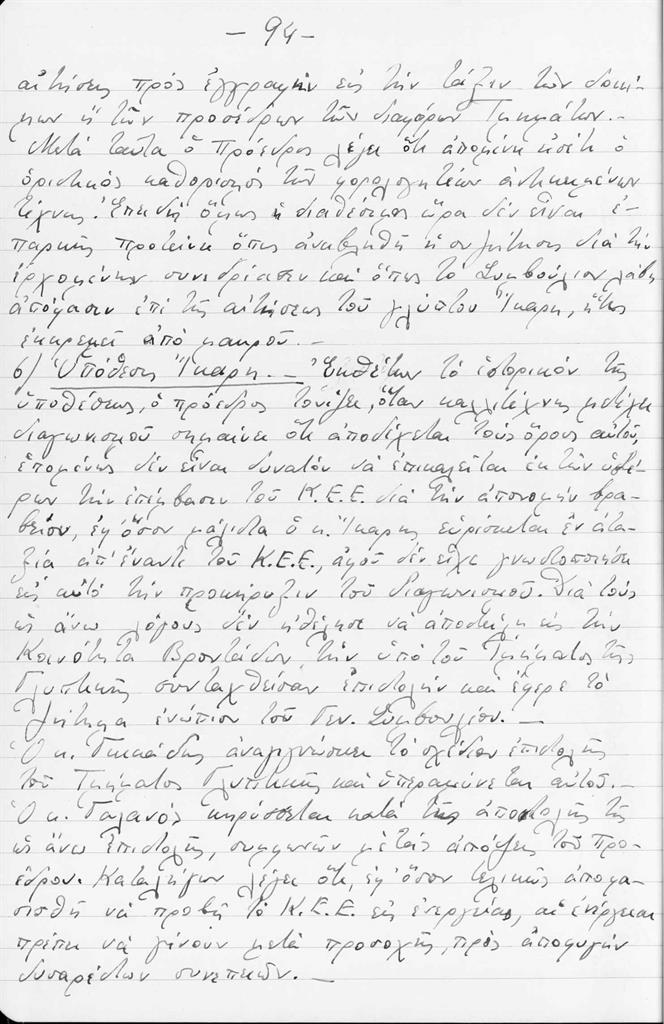 - 94 -
αἰτήσεις πρός ἐγγραφήν εἰς τήν τάξιν τῶν δοκί-
μων ἤ τῶν προσέδρων τῶν διαφόρων Τμημάτων.-
Μετά ταῦτα ὁ Πρόεδρος λέγει ὅτι ἀπομένει εἰσέτι ὁ
ὁριστικός καθορισμός τῶν φορολογητέων ἀντικειμένων
τέχνης. Ἐπειδή ὅμως ἡ διαθέσιμος ὥρα δέν εἶναι ἐ-
παρκής προτείνει ὅπως ἀναβληθῇ ἡ συζήτησις διά τήν
ἐρχομένην συνεδρίασιν καί ὅπως τό Συμβούλιον λάβῃ
ἀπόφασιν ἐπί τῆς αἰτήσεως τοῦ γλύπτου Ἴκαρη, ἥτις
ἐκκρεμεῖ ἀπό μακροῦ.-
6) Ὑπόθεσις Ἴκαρη.- Ἐκθέτων τό ἱστορικόν τῆς
ὑποθέσεως, ὁ πρόεδρος τονίζει, ὅταν καλλιτέχνης μετέχει
διαγωνισμοῦ σημαίνει ὅτι ἀποδέχεται τούς ὅρους αὐτοῦ,
ἑπομένως δέν εἶναι δυνατόν νά ἐπικαλεῖται ἐκ τῶν ὑστέ-
ρων τήν ἐπέμβασιν τοῦ Κ.Ε.Ε. διά τήν ἀπονομήν βρα-
βείου, ἐφ' ὅσον μάλιστα ὁ κ. Ἴκαρης εὑρίσκεται ἐν ἀτα-
ξίᾳ ἀπ' ἔναντι τοῦ Κ.Ε.Ε., ἀφοῦ δέν εἶχε γνωστοποιήσῃ
εἰς αὐτό τήν προκήρυξιν τοῦ διαγωνισμοῦ. Διά τούς
ὡς ἄνω λόγους δέν ἠθέλησε νά ἀποστείλῃ εἰς τήν
Κοινότητα Βροντάδου, τήν ὑπό τοῦ Τμήματος τῆς
Γλυπτικῆς συνταχθεῖσαν ἐπιστολήν καί ἔφερε τό
ζήτημα ἐνώπιον τοῦ Γεν. Συμβουλίου.-
Ὁ κ. ἀναγιγνώσκει τό σχέδιον ἐπιστολῆς
τοῦ Τμήματος Γλυπτικῆς καί ὑπεραμύνεται αὐτοῦ.-
Ὁ κ. Γαλανός κηρύσσεται κατά τῆς ἀποστολῆς τῆς
ὡς ἄνω ἐπιστολῆς, συμφωνῶν μέ τάς ἀπόψεις τοῦ Προ-
έδρου. Καταλήγων λέγει ὅτι, ἐφ' ὅσον τελικῶς ἀποφα-
σισθῇ νά προβῇ τό Κ.Ε.Ε. εἰς ἐνεργείας, αἱ ἐνέργειαι
πρέπει νά γίνουν μετά προσοχῆς, πρός ἀποφυγήν
δυσαρέστων συνεπειῶν.-